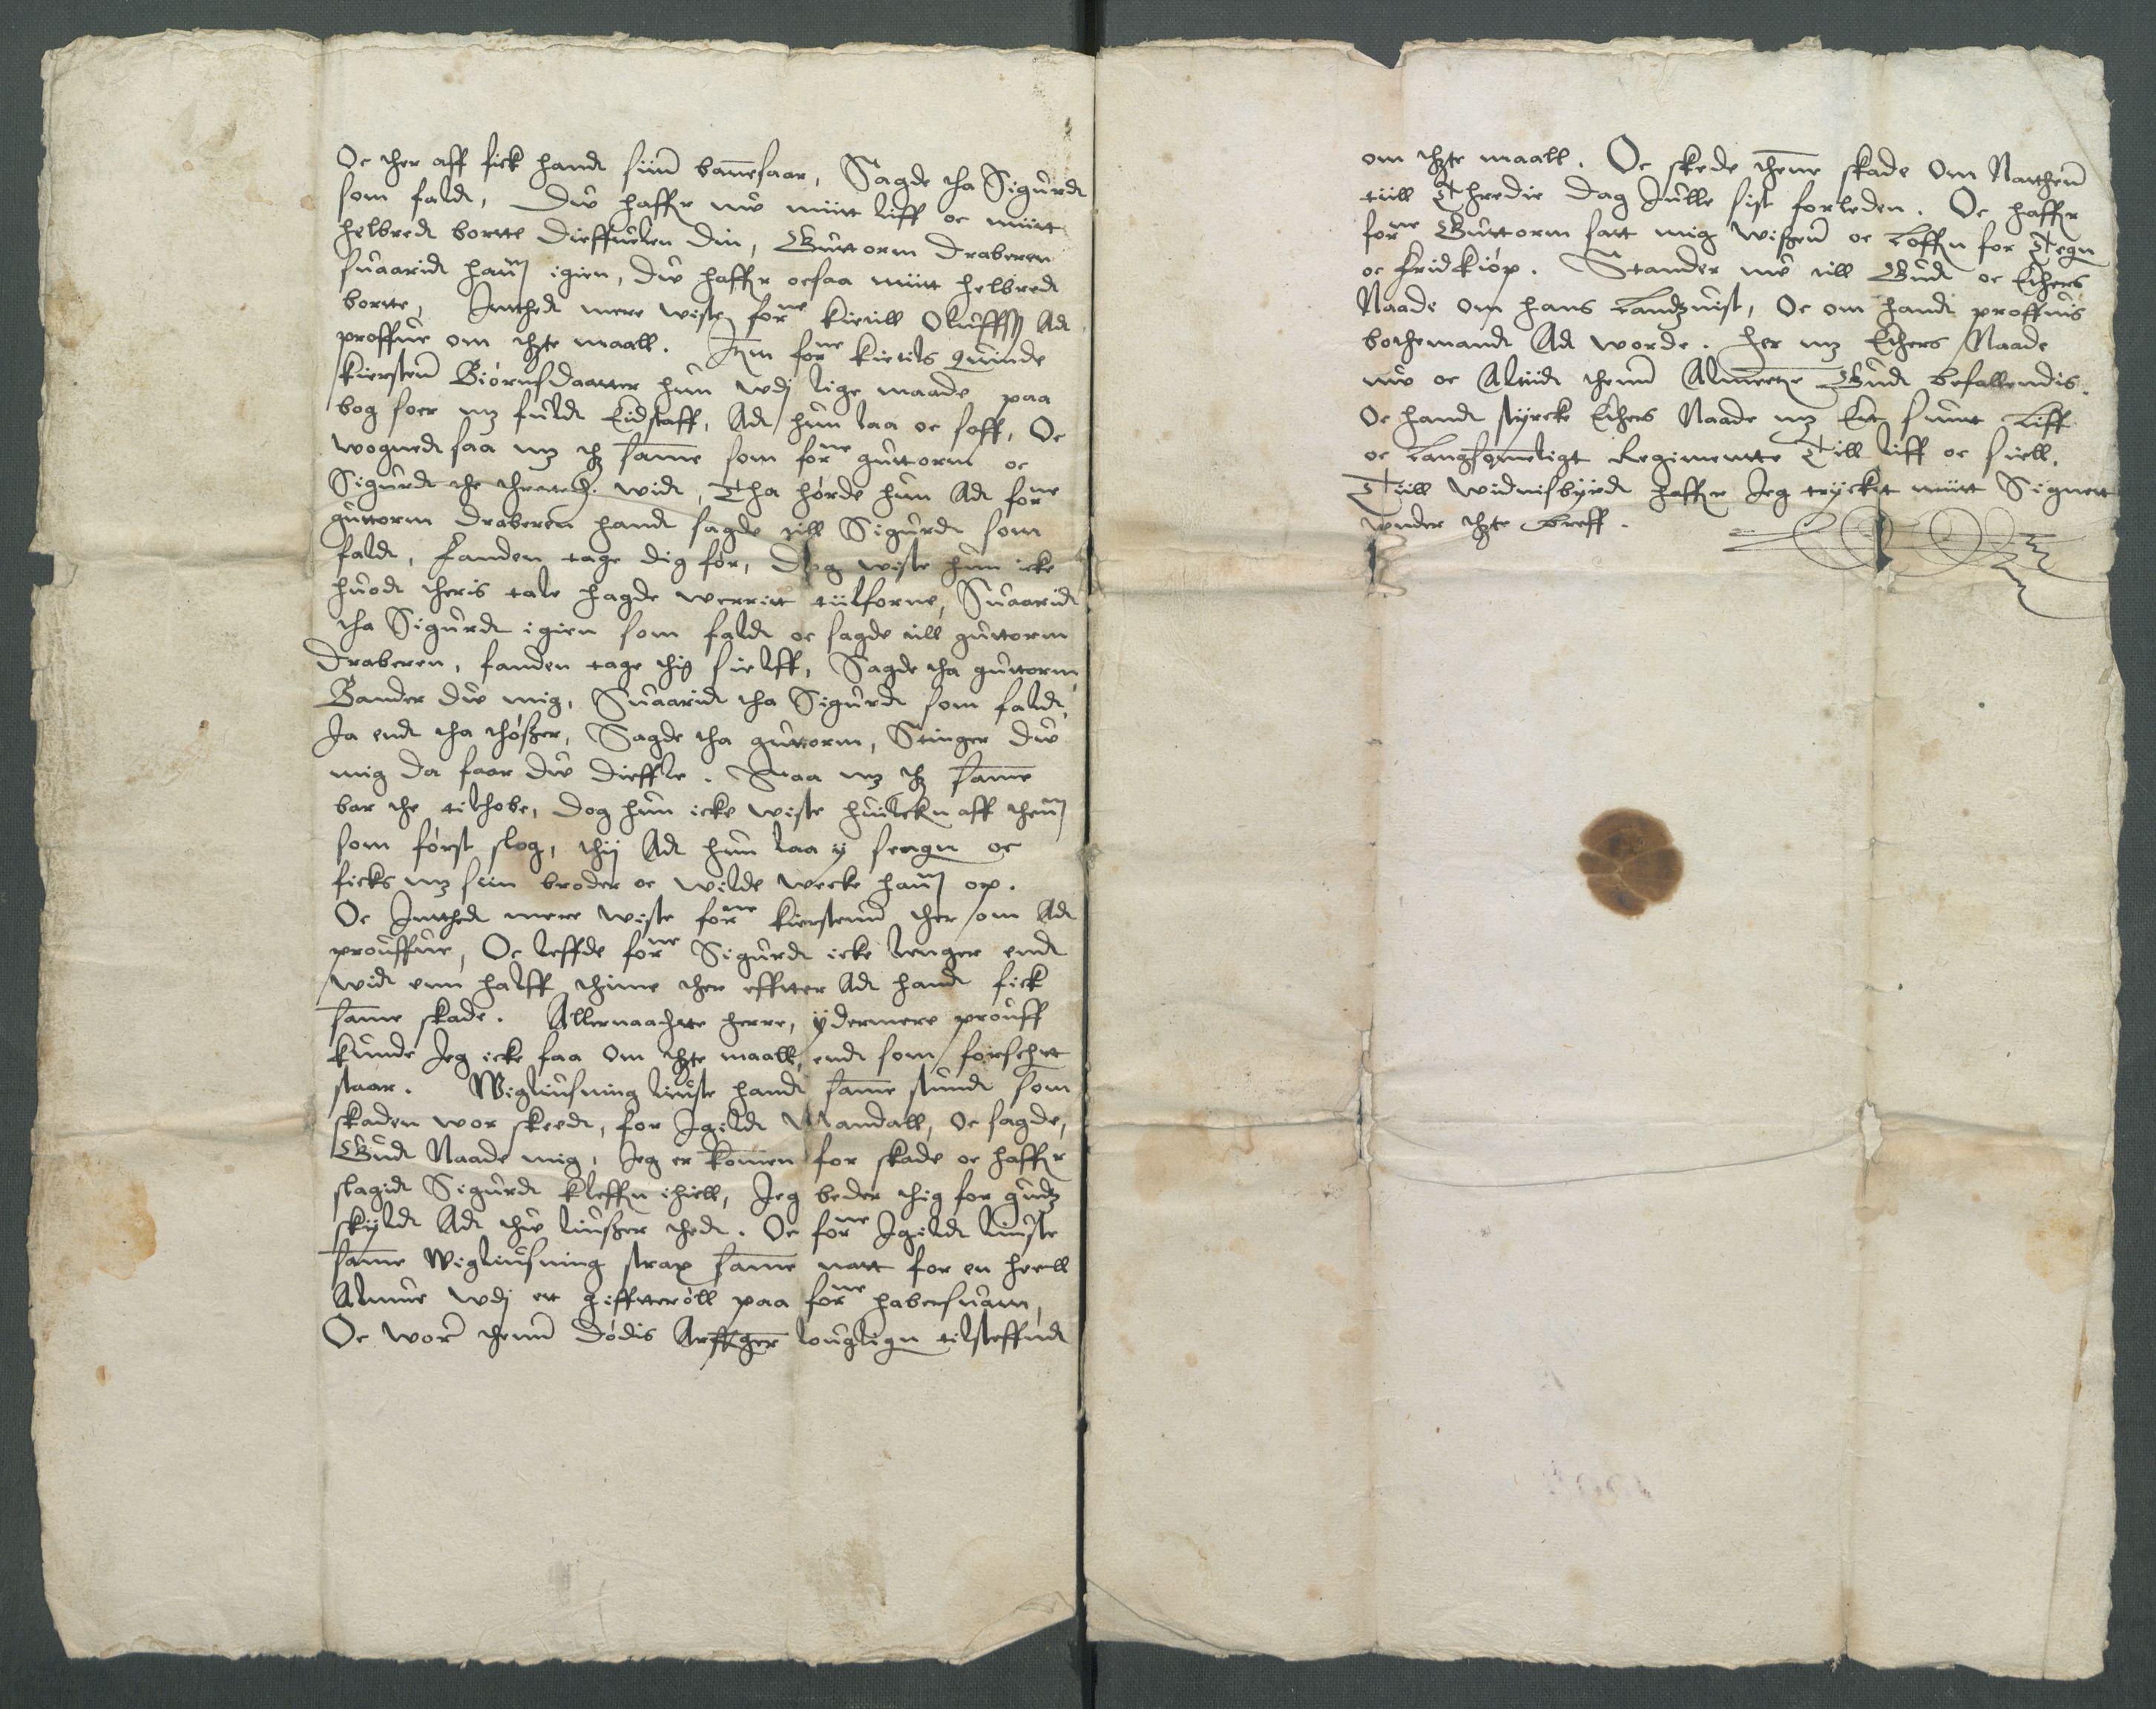 Oc ther aff fick hand siin banesaar, Sagde tha Sigurd
som fald, Du haffr nu miitt liff oc miitt
helbred bortte dieffuelen din, Guttorm draberen
suarid hanm igien, du haffr ocsaa miitt helbred
bortte, Inthed mere wiste forne kietill Oluffss Ad
proffue om thzte maall. Itm forne kietils quinde
kierstenn Biørnsdaatter hun wdj lige maade paa
bog soer mz fuld Eidstaff, Ad hun laa oc soff, Oc
wogned saa mz thz same som forne guttorm oc
Sigurd the threttedh wid, Tha hørde hun Ad forne
guttorm draberen hand sagde till Sigurd som
fald, Fanden tage dig før, Dog wiste hun icke
huod theris tale hagde werritt tiilforne, Suarid
tha Sigurd igien som fald oc sagde till guttorm
draberen, fanden tage thig sielff, Sagde tha guttorm
Bander du mig, Suarid tha Sigurd som fald,
Ja end tha thøßer, Sagde tha guttorm, Stinger du
mig da faar du dieffle. Straa mz thz same
bar the tilhobe, dog hun icke wiste huilckn aff them
som først slog, thij Ad hun laa ij sengn oc
ficks mz siin broder oc wilde wecke hanm op.
Oc Inthed mere wiste forne kierstenn ther om Ad
prouffue, Oc leffde forne Sigurd icke lenger end
wid enn halff thime ther effter Ad hand fick
same skade. Allernaadigste herre, ydermere prouff
kunde Jeg icke faa om thzte maall, end som forschrt
staar. Wigliusning liuste hand same stund som
skaden wor skeed, for Igild Mandall, oc sagde,
Gud Naade mig, Jeg er komen for skade oc haffr
slagid Sigurd kleffn ihiell, Jeg beder thig for gudz
skijld Ad thu liußer thed. Oc forne Igild liuste
same Wigliusning strax same natt for en heell
Almue wdj ett gifftterøll paa forne habersuam,
Oc wor thenn dødis Arffuinger louglign tilsteffnd
om thzte maall. Oc skede thenne skade om Natthenn
tiill Thredie dag Julle sist forleden. Oc haffr
forne Guttorm satt mig wißen oc Loffn for Tegn
oc Fridkiøp. Stander nu till Gud oc Ethers
Naade om hans Landzuist, Oc om hand proffuis
bothemand Ad worde. her mz Ethers Naade
nu oc Altiid thenn Almectige Gud befallendis.
Oc hand styrcke Ethers Naade mz Ett sunt Liff
oc Langsommeligt Regimentte Till liff oc siell.
Tiill widnisbyrd haffr Jeg tryckt miitt Signett
wnder thzte breff.